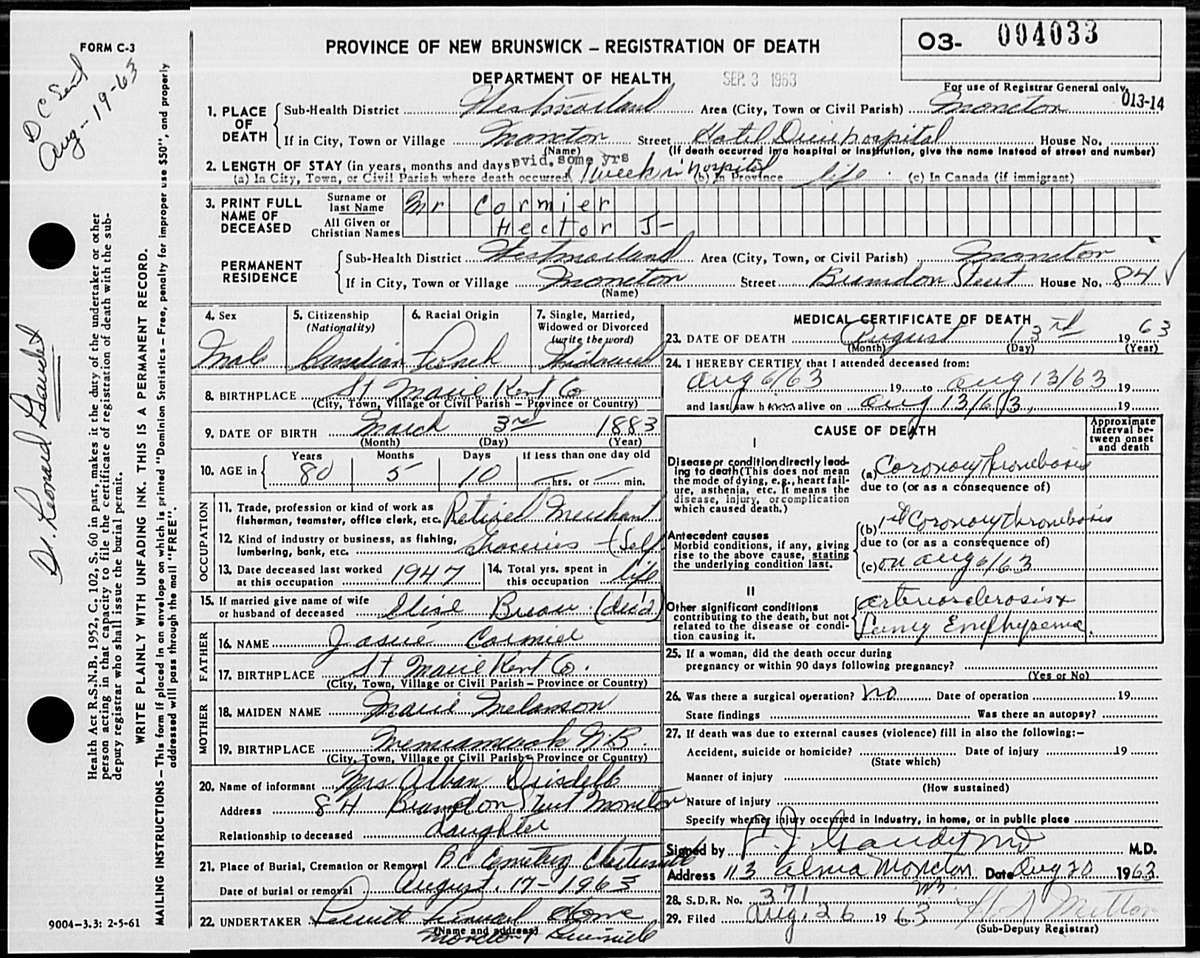 FORM C-3
D C Sent
Aug-19-63
PROVINCE OF NEW BRUNSWICK – REGISTRATION OF DEATH
DEPARTMENT OF HEALTH
SEP 3 1963
03- 004033
For use of Registrar General only
013-14
1. PLACE OF DEATH
Sub-Health District Westmorland Area (City, Town or Civil Parish) Moncton
If in City, Town or Village Moncton Street Hotel Dieu hospital House No.
(Name) (If death occurred in a hospital or institution, give the name instead of street and number)
2. LENGTH OF STAY (in years, months and days) evid. some yrs
(a) In City, Town, or Civil Parish where death occurred 1 week in hospital (b) In Province life (c) In Canada (if immigrant)
3. PRINT FULL NAME OF DECEASED
Surname or last Name Mr Cormier
All Given or Christian Names Hector J-
PERMANENT RESIDENCE
Sub-Health District Westmorland Area (City, Town, or Civil Parish) Moncton
If in City, Town or Village Moncton Street Brandon Street House No. 84 ✓
(Name)
4. Sex Male
5. Citizenship (Nationality) Canadian
6. Racial Origin French
7. Single, Married, Widowed or Divorced (write the word) Widowed
8. BIRTHPLACE St Marie Kent Co
(City, Town, Village or Civil Parish – Province or Country)
9. DATE OF BIRTH March 3rd 1883
(Month) (Day) (Year)
10. AGE in Years 80 Months 5 Days 10 If less than one day old hrs. or min.
OCCUPATION
11. Trade, profession or kind of work as fisherman, teamster, office clerk, etc. Retired Merchant
12. Kind of industry or business, as fishing, lumbering, bank, etc. Groceries - (Self
13. Date deceased last worked at this occupation 1947
14. Total yrs. spent in this occupation life
15. If married give name of wife or husband of deceased Elise (dec'd)
FATHER
16. NAME Cormier
17. BIRTHPLACE St Marie Kent Co.
(City, Town, Village or Civil Parish – Province or Country)
MOTHER
18. MAIDEN NAME Marie Melanson
19. BIRTHPLACE N.B.
(City, Town, Village or Civil Parish – Province or Country)
20. Name of informant Mrs Alban
Address 84 Brandon Street Moncton
Relationship to deceased daughter
21. Place of Burial, Cremation or Removal R.C. Cemetery
Date of burial or removal August 17-1963
22. UNDERTAKER Home
(Name and address)
Moncton
MEDICAL CERTIFICATE OF DEATH
23. DATE OF DEATH August 13rd 1963
(Month) (Day) (Year)
24. I HEREBY CERTIFY that I attended deceased from:
Aug 6/63 19 to Aug 13/63 19
and last saw h alive on Aug 13/63, 19
CAUSE OF DEATH
Approximate interval between onset and death
I
Disease or condition directly leading to death (This does not mean the mode of dying, e.g., heart failure, asthenia, etc. It means the disease, injury, or complication which caused death.)
(a) Coronary thrombosis
due to (or as a consequence of)
Antecedent causes
Morbid conditions, if any, giving rise to the above cause, stating the underlying condition last.
(b) 1st Coronary thrombosis
due to (or as a consequence of)
(c) on Aug 6/63
II
Other significant conditions contributing to the death, but not related to the disease or condition causing it.
Arteriosclerosis +
Emphysema.
25. If a woman, did the death occur during pregnancy or within 90 days following pregnancy?
(Yes or No)
26. Was there a surgical operation? no Date of operation 19
State findings Was there an autopsy?
27. If death was due to external causes (violence) fill in also the following:–
Accident, suicide or homicide? Date of injury 19
(State which)
Manner of injury
(How sustained)
Nature of injury
Specify whether injury occurred in industry, in home, or in public place
Signed by L. J. Gaudet MD M.D.
Address 113 Alma Moncton Date Aug 20 1963
28. S.D.R. No. 371
29. Filed Aug. 26 1963
(Sub-Deputy Registrar)
Dr. Leonard Gaudet
Health Act R.S.N.B. 1952, C. 102, S. 60 in part, makes it the duty of the undertaker or other person acting in that capacity to file the certificate of registration of death with the sub-deputy registrar who shall issue the burial permit.
WRITE PLAINLY WITH UNFADING INK. THIS IS A PERMANENT RECORD.
MAILING INSTRUCTIONS – This form if placed in an envelope on which is printed "Dominion Statistics – Free, penalty for improper use $50", and properly addressed will pass through the mail "FREE".
9004-3.3: 2-5-61